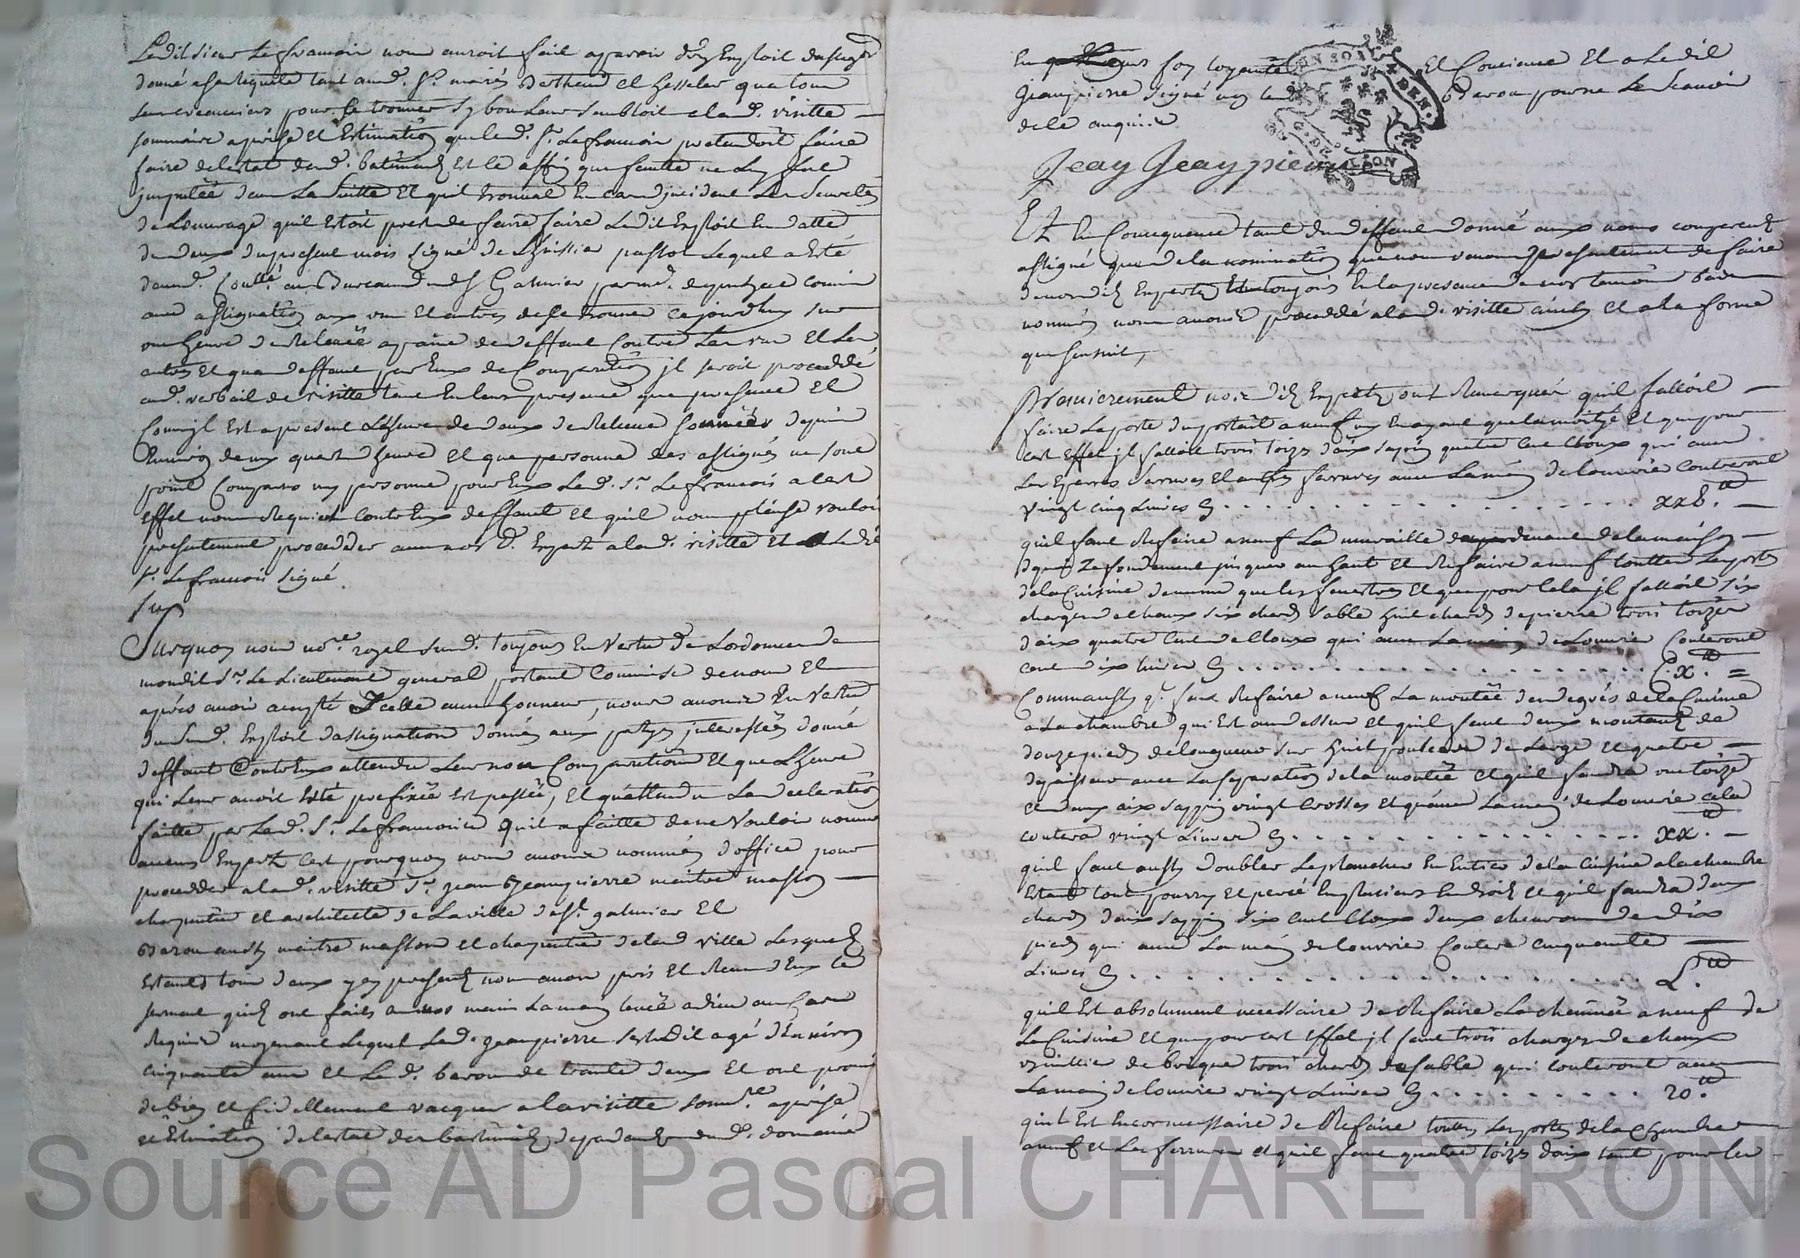 Ledit sieur Lefrancois nous auroit fait aparoir d'un Exploit dassignõn
donné a sa Requete tant aud. Sr. mariés Et hesseler que tous
leurs creanciers pour se trouver sy bon Leur sembloit a lad. visitte
sommaire aprise et Estimatiõn que led. Sr. Lefrancois pretendoit faire
faire de lestat dud. batiment Et ce affin que faulte ne luy fut
imputée dans La suitte Et quil trouvat En cas djncident Les seuretés
de Louvrage quil Estoit prest de faire faire Ledit Exploit En datte
du deux du present mois signé de Lhuissier pastor Lequel a Esté
Controllé au Bureau de St Galmier par me.
avec assignatiõn aux uns Et autres de se trouver ce jourdhuy sur
une heure de Relevée a paine de deffaut Contre Les uns Et Les
autres Et qua deffaut par Eux de Comparoitre jl seroit proceddé
aud. verbail de visitte tant En leurs presence que absence Et
Comme jl Est a present Lheure de deux de Relevée sonnées depuis
Environ demy quart dheure Et que personne des assignés ne sont
point Comparus ny personne pour Eux Led. Sr. Lefrancois a cet
Effet nous Requiert contr Eux deffaut Et quil nous plaise vouloir
presentement procedder avec nos d. Experts a lad. visitte Et a Ledit
Sr. Lefrancois signé.
Sur
Surquoy nous nore. royal susd. toujours En Vertu de Lordonnance de
mondit Sr. Le Lieutenant general portant Commise de nous Et
aprés avoir accepté Jcelle avec honneur, nous avons En Vertu
dususd. Exploit dassignation donnés aux partyes jnteressées donné
deffaut Contr Eux attendu Leur non Comparution Et que Lheure
qui Leur avoit Esté prefixée Est passée, Et quattendu La declaratiõn
faitte par Led. Sr. Lefrancois quil a faitte de ne Vouloir nommer
aucuns Experts Cest pourquoy nous avons nommés doffice pour
procedder a lad. visitte Sr. jean Jeanpierre maitre masson
charpentier et architecte de La ville de St. galmier Et
Baron aussy maitre masson et charpentier de lad ville Lesquels
Estants tous deux yey presents nous avons pris Et Receu d'Eux le
serment quils ont faits a nos mains La main levée a dieu au Cas
Requis moyenant Lequel Led. jeanpierre sest dit agé d'Environ
cinquante ans Et Led. baron de trante deux Et ont promis
de bien et fidellement vacquer a la visitte somre. aprise
et Estimatiõn de lestat des bastiments dependants dud. domaine
En leurs foy loyauté Et Concience Et a Ledit
jeanpierre signé non Led Baron pour ne Le scavoir
de ce anquis.
Jean Jeanpierre
Et En Consequence tant du deffaut donné aux nons comparents
assigné que de la nominatiõn que nous venons presentement de faire
de nos dits Experts Et toujours En la presence de nos temoins bas
nommés nous avons proceddé a lad. visitte ainsy Et a La forme
que sensuit,
Premierement nos dits Experts ont Remarqué quil falloit
faire La porte du portail a neuf ny En ayant que la moityé Et que pour
cet Effet jl falloit trois toizes d'aix sapin quatre Cent Cloux qui avec
Les Eparres serrures Et autres ferrures avec La main de louvrié Couteront
vingt cinq Livres Cy . . . . . . . . . . xxv.lt
quil faut Refaire a neuf La muraille de la maison
depuis Le fondement jusques au haut Et Refaire a neuf touttes Les portes
de la Cuisine de meme que les fenestres Et que pour Cela jl falloit six
charges de chaux six chards sable huit chards de pierre trois toizes
daix quatre Cent de Cloux qui avec La main de Louvrié Couteront
cent dix livres Cy . . . . . . . . . . C.x.lt
Comm'aussy quil faut Refaire a neuf La montée des degrés de la Cuisine
a La chambre qui Est au dessus Et quil faut deux montants de
douze pieds de longueur sur huit pouces de Large et quatre
depaisseur avec La separatiõn de la montée Et quil faudra une toize
et deux aix sappin vingt Crosses Et qu'avec La main de Louvrié cela
coutera vingt Livres Cy . . . . . . . . . . xx.lt
quil faut aussy doubler Le plancher En Entier de la Cuisine a la chambre
Estant tout pourry Et percé En plusieurs Endroits Et quil faudra deux
chards daix sappin six Cent Cloux deux chevrons de dix
pieds qui avec La main de louvrié Coutera cinquante
Livres Cy . . . . . . . . . . L.lt
quil Est absolument necessaire de Refaire La cheminée a neuf de
La Cuisine Et que pour cet Effet jl faut trois charges de chaux
de brique trois chards de sable qui couteront avec
La main de louvrié vingt Livres Cy . . . . . . . . . 20.lt
quil Est Encor necessaire de Refaire touttes Les portes de la Chambre
a neuf et Les ferrures et quil faut quatre toizes daix tant pour les
Source AD Pascal CHAREYRON